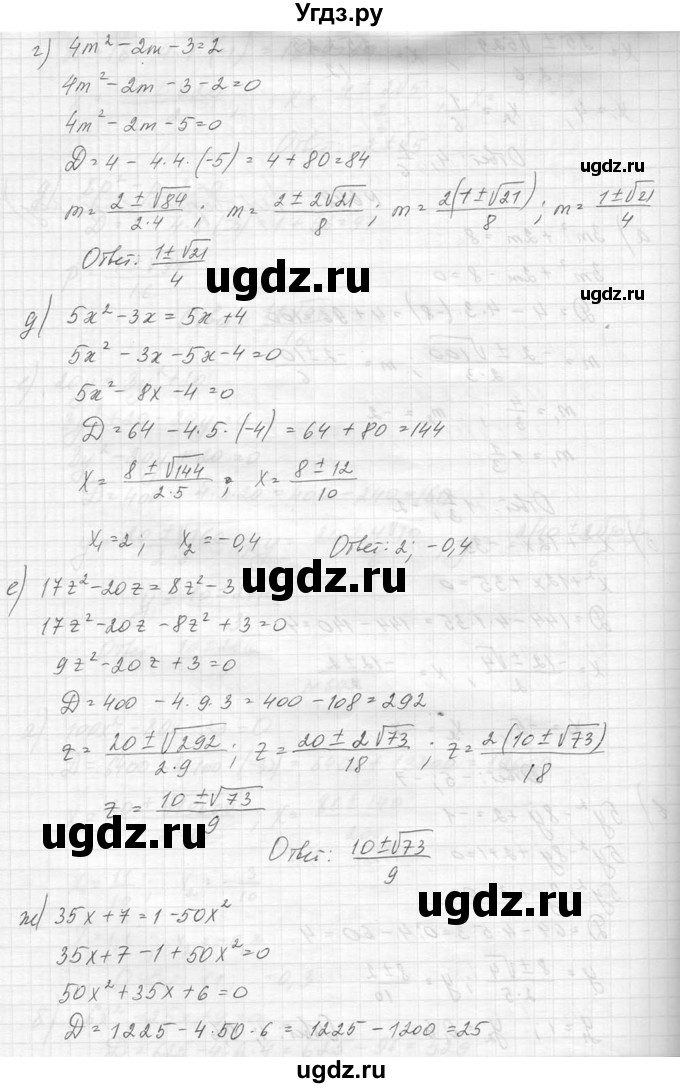 Угдз.ру
г) 4m² - 2m - 3 = 2
4m² - 2m - 3 - 2 = 0
4m² - 2m - 5 = 0
D = 4 - 4·4·(-5) = 4 + 80 = 84
ugdz.ru
m = (2 ± √84)/(2·4); m = (2 ± 2√21)/8; m = 2(1 ± √21)/8; m = (1 ± √21)/4
Ответ: (1 ± √21)/4
ugdz.ru ugdz.ru
д) 5x² - 3x = 5x + 4
5x² - 3x - 5x - 4 = 0
5x² - 8x - 4 = 0
D = 64 - 4·5·(-4) = 64 + 80 = 144
x = (8 ± √144)/(2·5); x = (8 ± 12)/10
ugdz.ru
x₁ = 2; x₂ = -0,4 Ответ: 2; -0,4
е) 17z² - 20z = 8z² - 3
ugdz.ru
17z² - 20z - 8z² + 3 = 0
9z² - 20z + 3 = 0
D = 400 - 4·9·3 = 400 - 108 = 292
z = (20 ± √292)/(2·9); z = (20 ± 2√73)/18; z = 2(10 ± √73)/18
ugdz.ru
z = (10 ± √73)/9
ugdz.ru
Ответ: (10 ± √73)/9
ж) 35x + 7 = 1 - 50x²
35x + 7 - 1 + 50x² = 0
ugdz.ru
50x² + 35x + 6 = 0
D = 1225 - 4·50·6 = 1225 - 1200 = 25